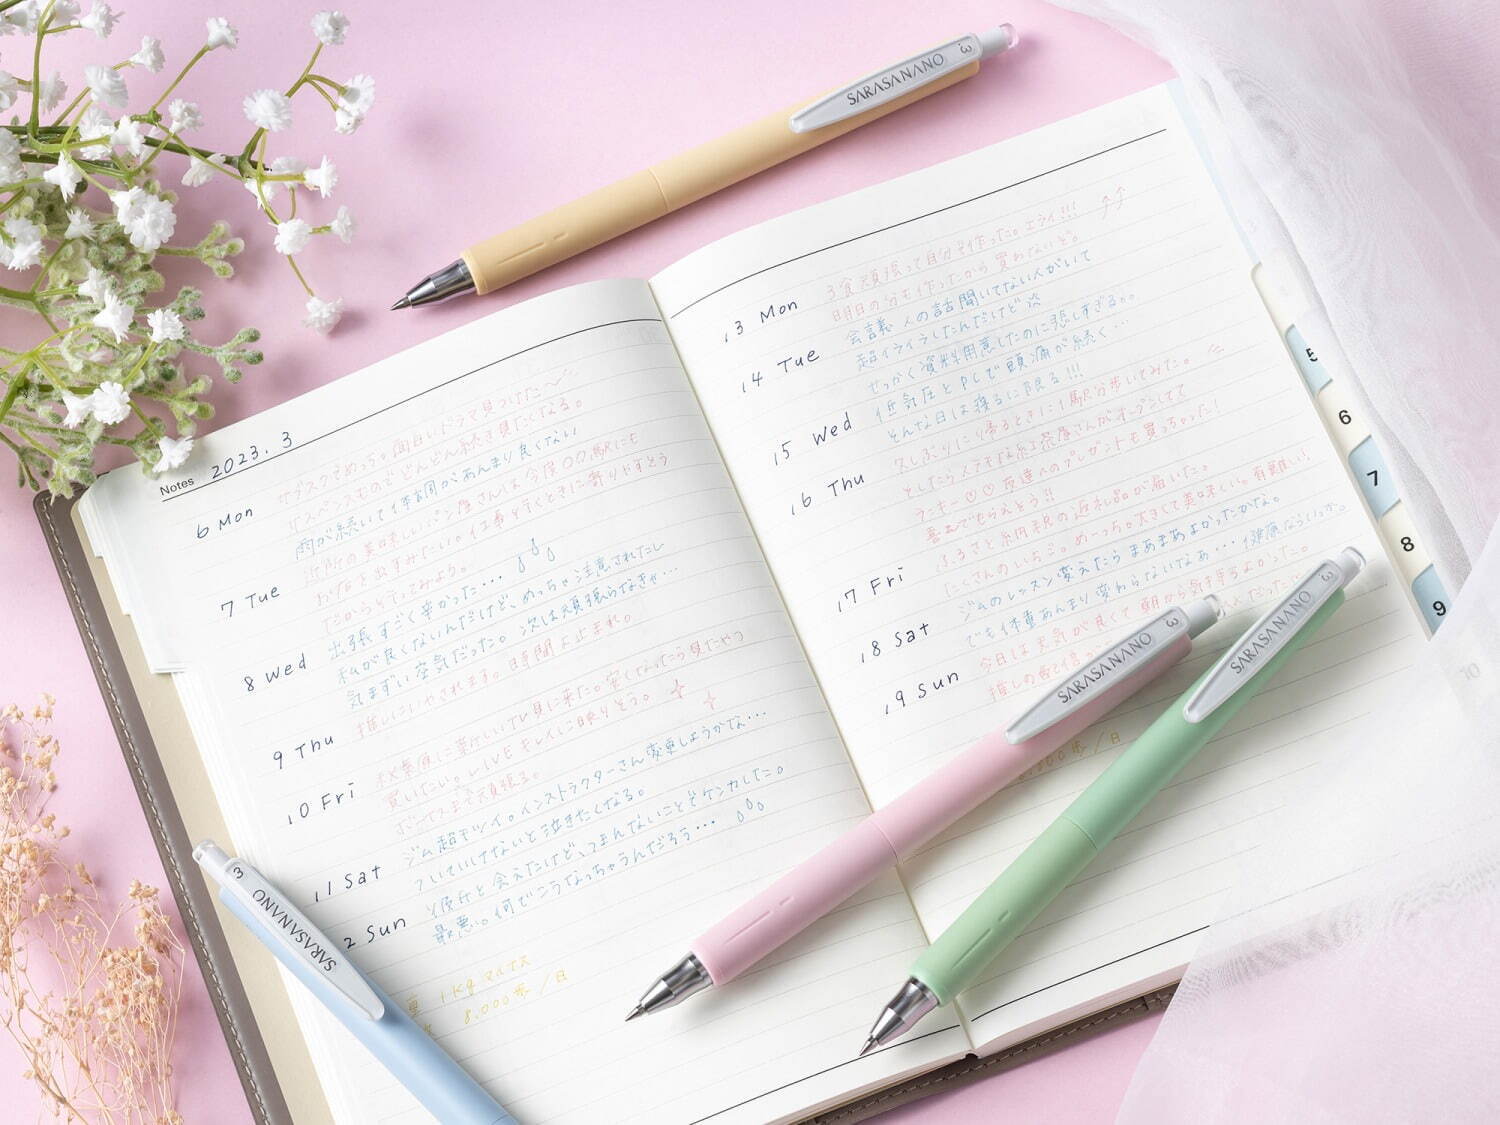 SARASA NANO
.3
Notes 2023. 3
6 Mon
サブスクでめっちゃ面白いドラマ見つけた〜
サスペンスものでどんどん続き見たくなる。
雨が続いて体調があんまり良くない
7 Tue
近所の美味しいパン屋さんは今度〇〇駅にも
お店を出すみたい。仕事行くときに寄りやすそう
だから行ってみよう。
8 Wed
出張すごく辛かった...
私が良くないんだけど、めっちゃ注意されたし
気まずい空気だった。次は頑張らなきゃ...
9 Thu
推しにいやされます。時間よ止まれ。
10 Fri
秋葉原に新しいTV見に来た。安くなったら見たやつ
買いたい。LIVEキレイに映りそう。
ボーナスまで頑張る。
11 Sat
ジム超キツイ。インストラクターさん変更しようかな...
ついていけないと泣きたくなる。
2 Sun
彼氏と会えたけど、つまんないことでケンカした。
最悪。何でこうなっちゃうんだろう...
1kgマイナス
8.000歩/日
13 Mon
3食頑張って自分で作った。エライ!!!
明日の分も作ったから買わないぞ。
14 Tue
会議 人の話聞いてない人がいて
超イライラしたんだけど
せっかく資料用意したのに悲しすぎる。
15 Wed
低気圧とPLで頭痛が続く...
そんな日は寝るに限る!!!
16 Thu
久しぶりに帰るときに1駅分歩いてみた。
そしたらステキな雑貨屋さんがオープンしてて
ラッキー♡♡友達へのプレゼントも買っちゃった!
喜んでもらえそう!!
17 Fri
ふるさと納税の返礼品が届いた。
たくさんのいちご。めっちゃ大きくて美味しい。有難い!
18 Sat
ジムのレッスン変えたらまあまあよかったかな。
でも体重あんまり変わらないなぁ...健康ならいっか。
19 Sun
今日は天気が良くて朝から気持ちよかった。
推しの
歩/日
5
6
7
8
9
10
SARASA NANO
.3
SARASA NANO
.3
SARASA NANO
3